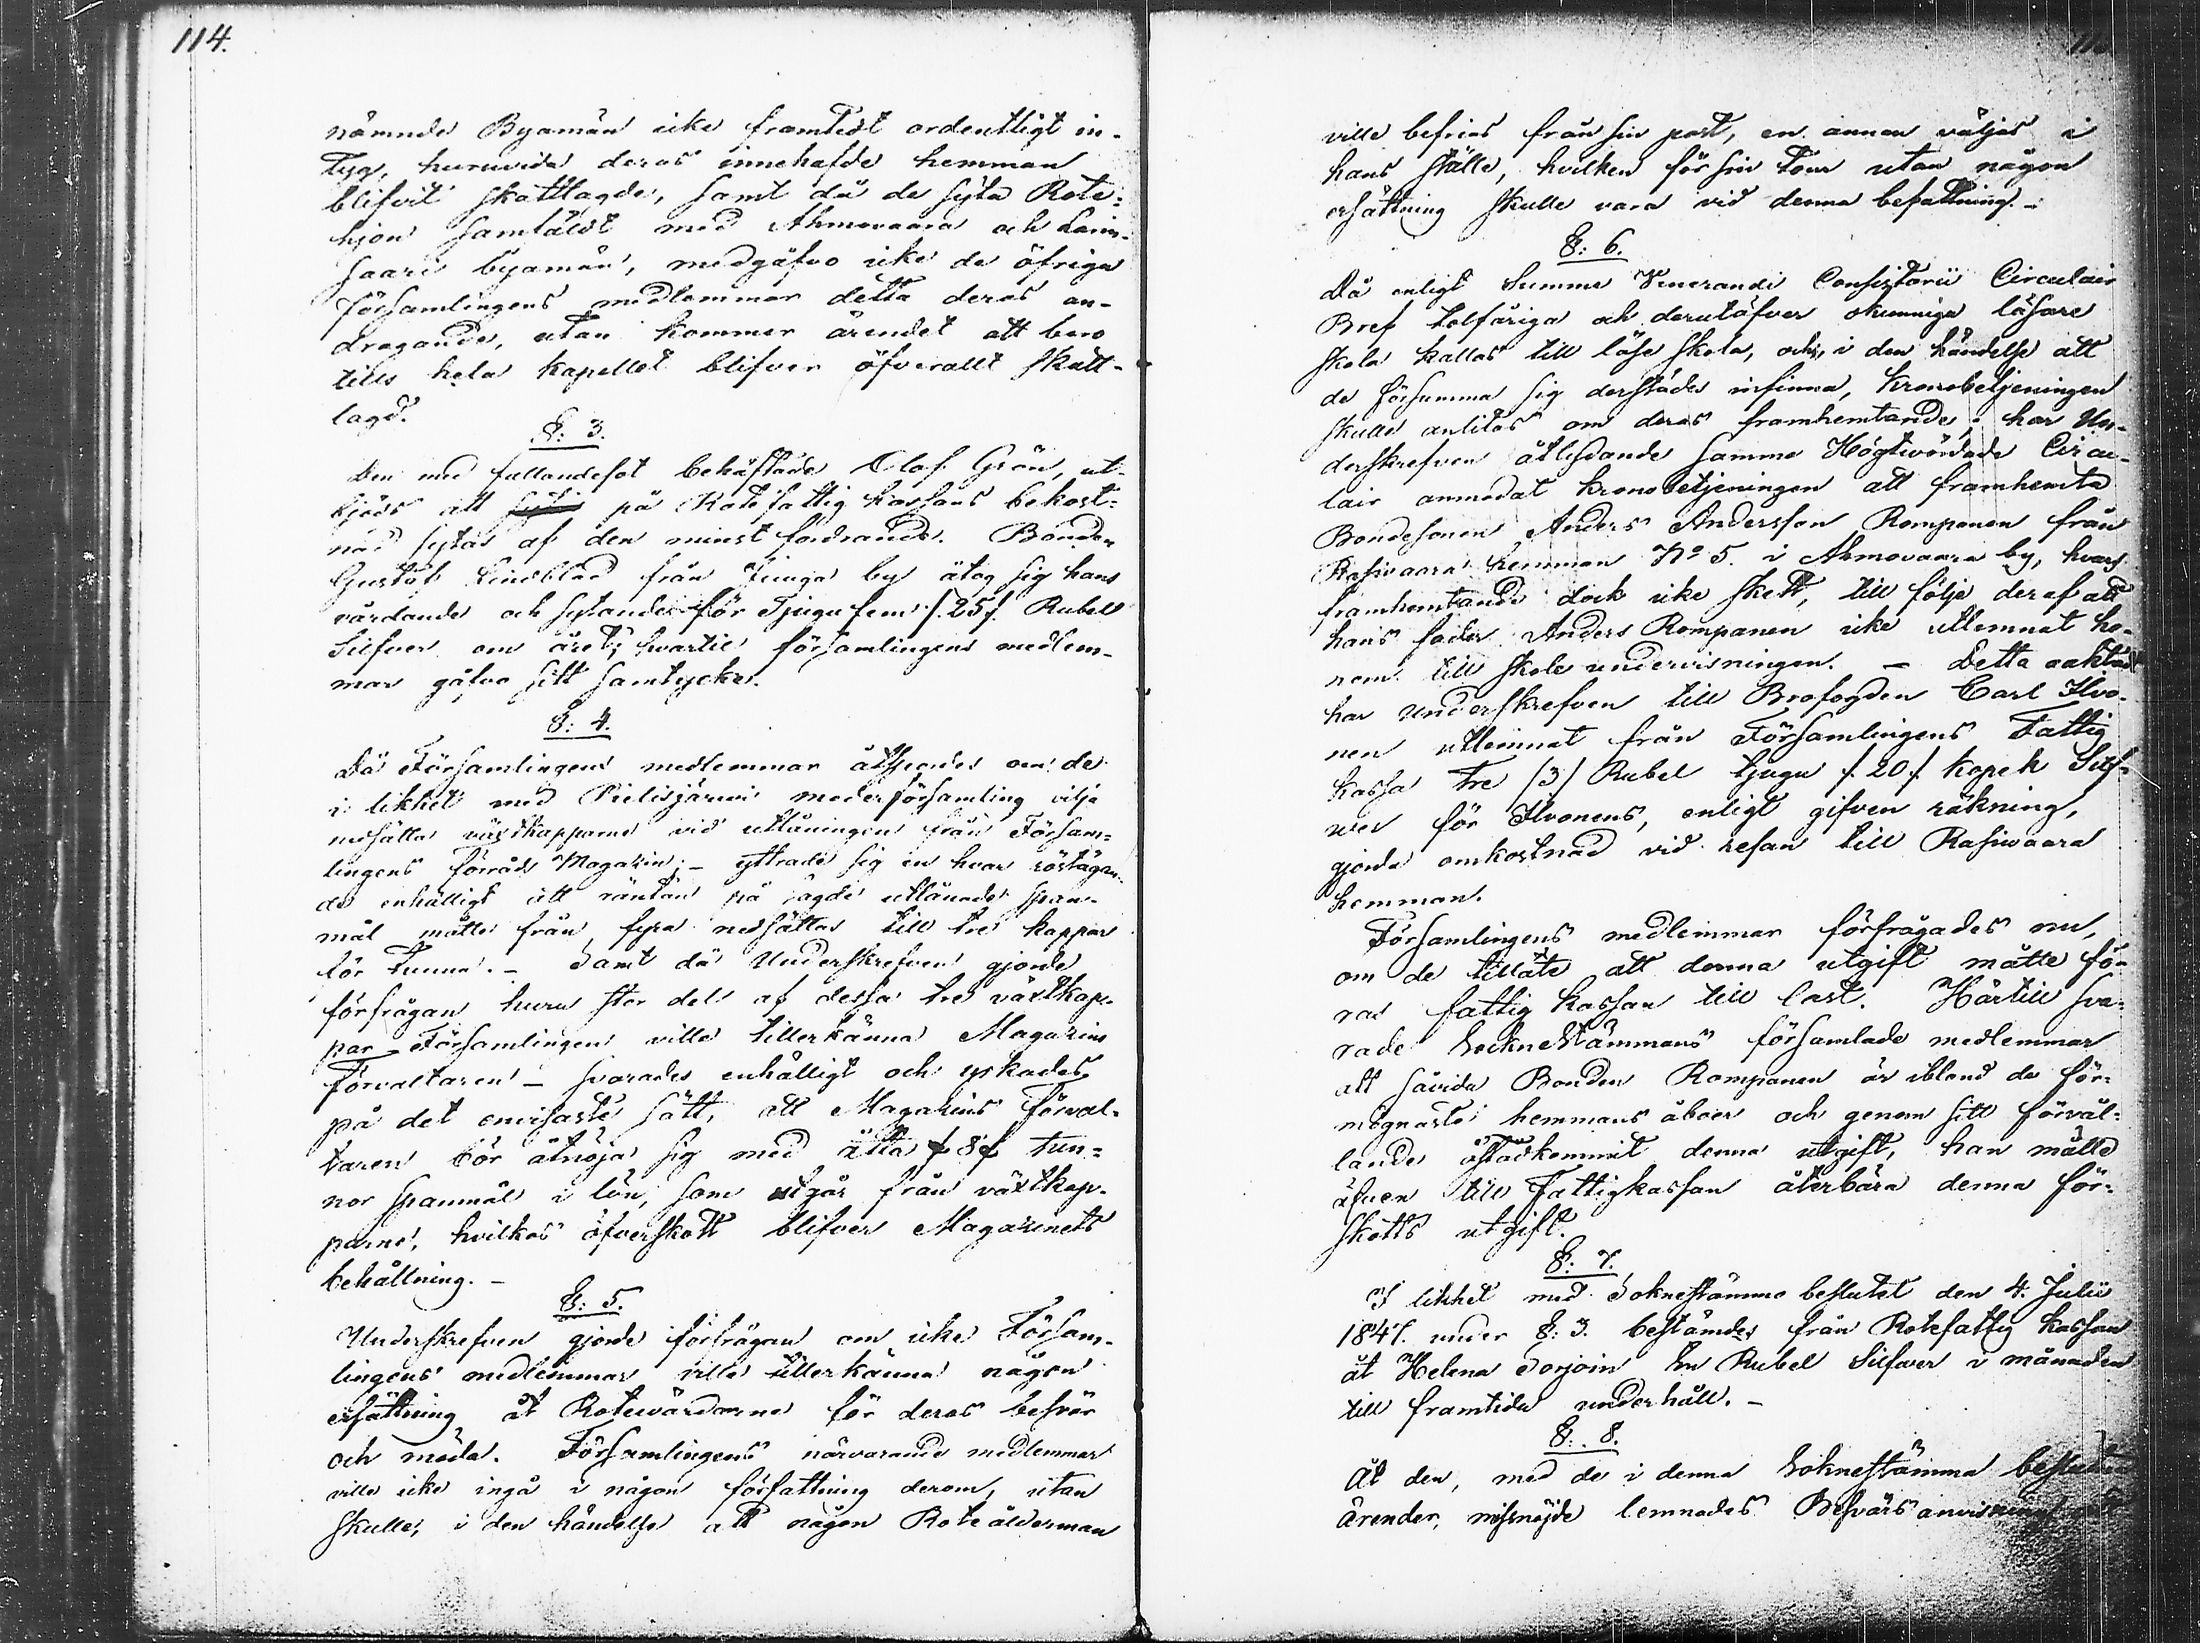 114.
nämnde Byamän icke framtedt ordentligt in-
tyg, huruvida deras innehafde hemman
blifvit skattlagde, samt då de syta Rote-
hjon samfäldt med Ahmovaara och
saari byamän, medgåfvo icke de öfriga
församlingens medlemmar detta deras an-
dragande, utan kommer ärendet att bero
tills hela kapellet blifver öfverallt skatt-
lagd.
§: 3.
Den med fallandesot behäftade Olof Grön, ut-
bjöds att på Rotefattig kassans bekost-
nad sytas af den minst fordrande. Bonden
Gustaf Lindblad från Juuga by åtog sig hans
vårdande och sytande för Tjugufem /.25/. Rubel
Silfver om året; hvartil församlingens medlem-
mar gåfvo sitt samtycke.
§: 4.
Då Församlingens medlemmar åtspordes om de
i likhet med Pielisjärvi moderförsamling vilja
nedsätta växtkapparne vid utlåningen från Försam-
lingens förråds Magasin; – yttrade sig en hvar röstägan-
de enhälligt att räntan på sagde utlånade span-
mål måtte från fyra nedsättas till tre kappar
för tunna. – Samt då Underskrefven gjorde
förfrågan huru stor del af dessa tre växtkap-
par Församlingen ville tillerkänna Magasins
Förvaltaren – svarades enhälligt och yrkades
på det envisaste sätt, att Magasins Förval-
taren bör åtnöja sig med åtta /.8/. tun-
nor spanmål i lön, som utgår från växtkap-
parne, hvilkas öfverskott blifver Magasinets
behållning. –
§: 5.
Underskrefven gjorde förfrågan om icke Försam-
lingens medlemmar ville tillerkänna någon
ersättning åt Rotevärdarne för deras besvär
och möda. Församlingens närvarande medlemmar
ville icke ingå i någon författning derom, utan
skulle, i den händelse att någon Rote ålderman
ville befrias från sin post, en annan väljas i
hans ställe, hvilken för sin tour utan någon
ersättning skulle vara vid denna befattning. –
§: 6.
Då enligt Summe Venerandi Consistorii Circulair
Bref tolfåriga och derutöfver okunniga läsare
skola kallas till läse skola, och, i den händelse att
de försumma sig derstädes infinna, kronobetjeningen
skulle anlitas om deras framhemtande; har Un-
derskrefven åtlydande samma Högtvördade Circu-
lair anmodat kronobetjeningen att framhemta
Bondesonen Anders Andersson Romppanen från
Rasivaara hemman No 5. i Ahmovaara by, hvars
framhemtande dock icke skett, till följe deraf att
hans fader Anders Rompanen icke utlemnat ho-
nom till skole undervisningen. – Detta oaktadt
har Underskrefven till Brofogden Carl Ilvo-
nen utlemnat från Församlingens Fattig
kassa Tre /3/ Rubel tjugu /.20/. kopek Silf-
wer för Ilvonens, enligt gifven räkning,
gjorda omkostnad vid resan till Rasiwaara
hemman.
Församlingens medlemmar förfrågades nu,
om de tillåta att denna utgift måtte fö-
ras fattig kassan till last. Härtill sva-
rade Socknestämmans församlade medlemmar
att såvida Bonden Rompanen är ibland de för-
mögnaste hemmans åboer och genom sitt förvål-
lande åstadkommit denna utgift, han måtte
äfven till Fattigkassan återbära denna för-
skotts utgift.
§: 7.
I likhet med Soknestämmo beslutet den 4. Julii
1847. under §: 3. bestämdes från Rotefattig kassan
åt Helena Sorjoin En Rubel Silfver i månaden
till framtida underhåll. –
§: 8.
Åt den, med de i denna Soknestämma beslutna
ärender, missnöjde lemnades Besvärs anvisning